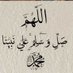 اللَّهُمَّ
صَلِّ وَسَلِّمْ عَلَى نَبِيِّنَا
مُحَمَّد